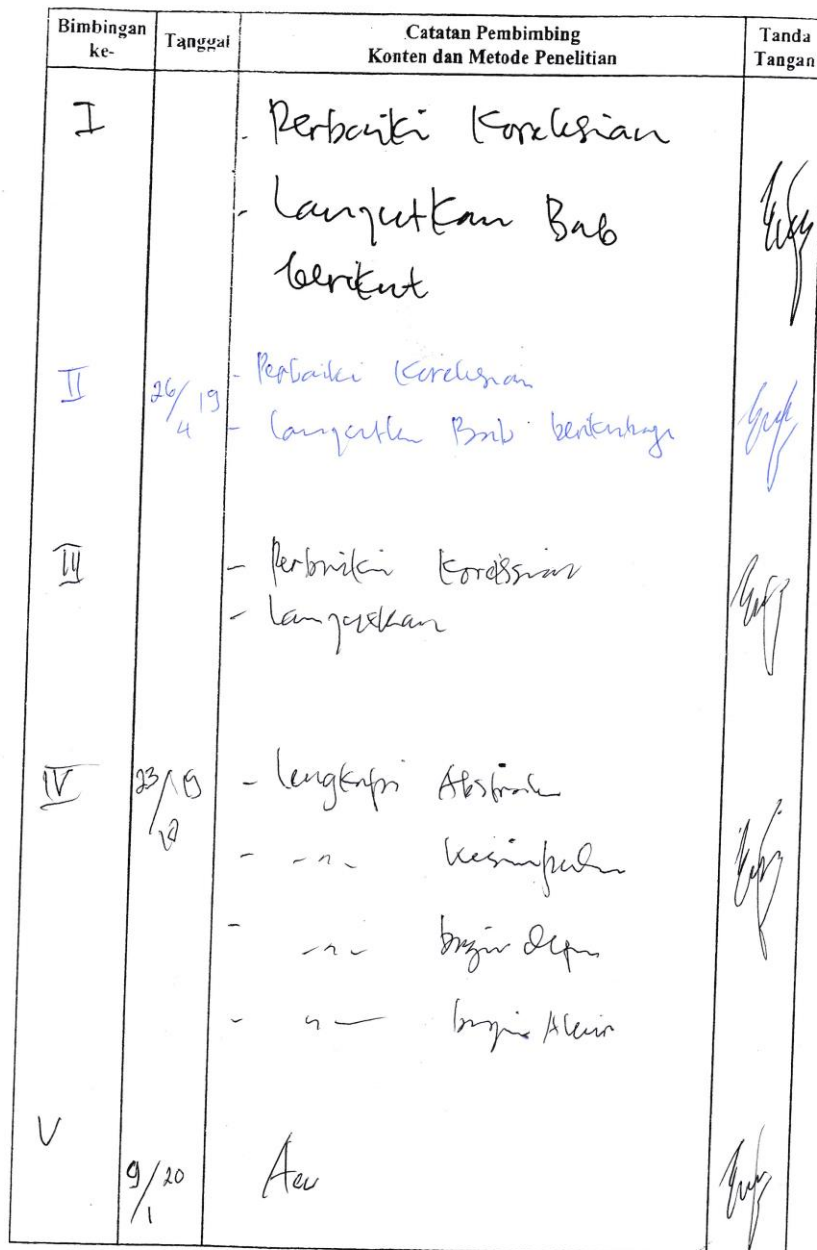 Bimbingan ke-
Tanggal
Catatan Pembimbing
Konten dan Metode Penelitian
Tanda Tangan
I
- Perbaiki Koreksian
- Lanjutkan Bab
berikut
II
26/4 19
- Perbaiki Koreksian
- Lanjutkan Bab berikutnya
III
- Perbaiki Koreksian
- Lanjutkan
IV
23/ 19
- Lengkapi Abstrak
- -n- Kesimpulan
- -n- bagian depan
- -n- bagian Akhir
V
9/1 20
Acc